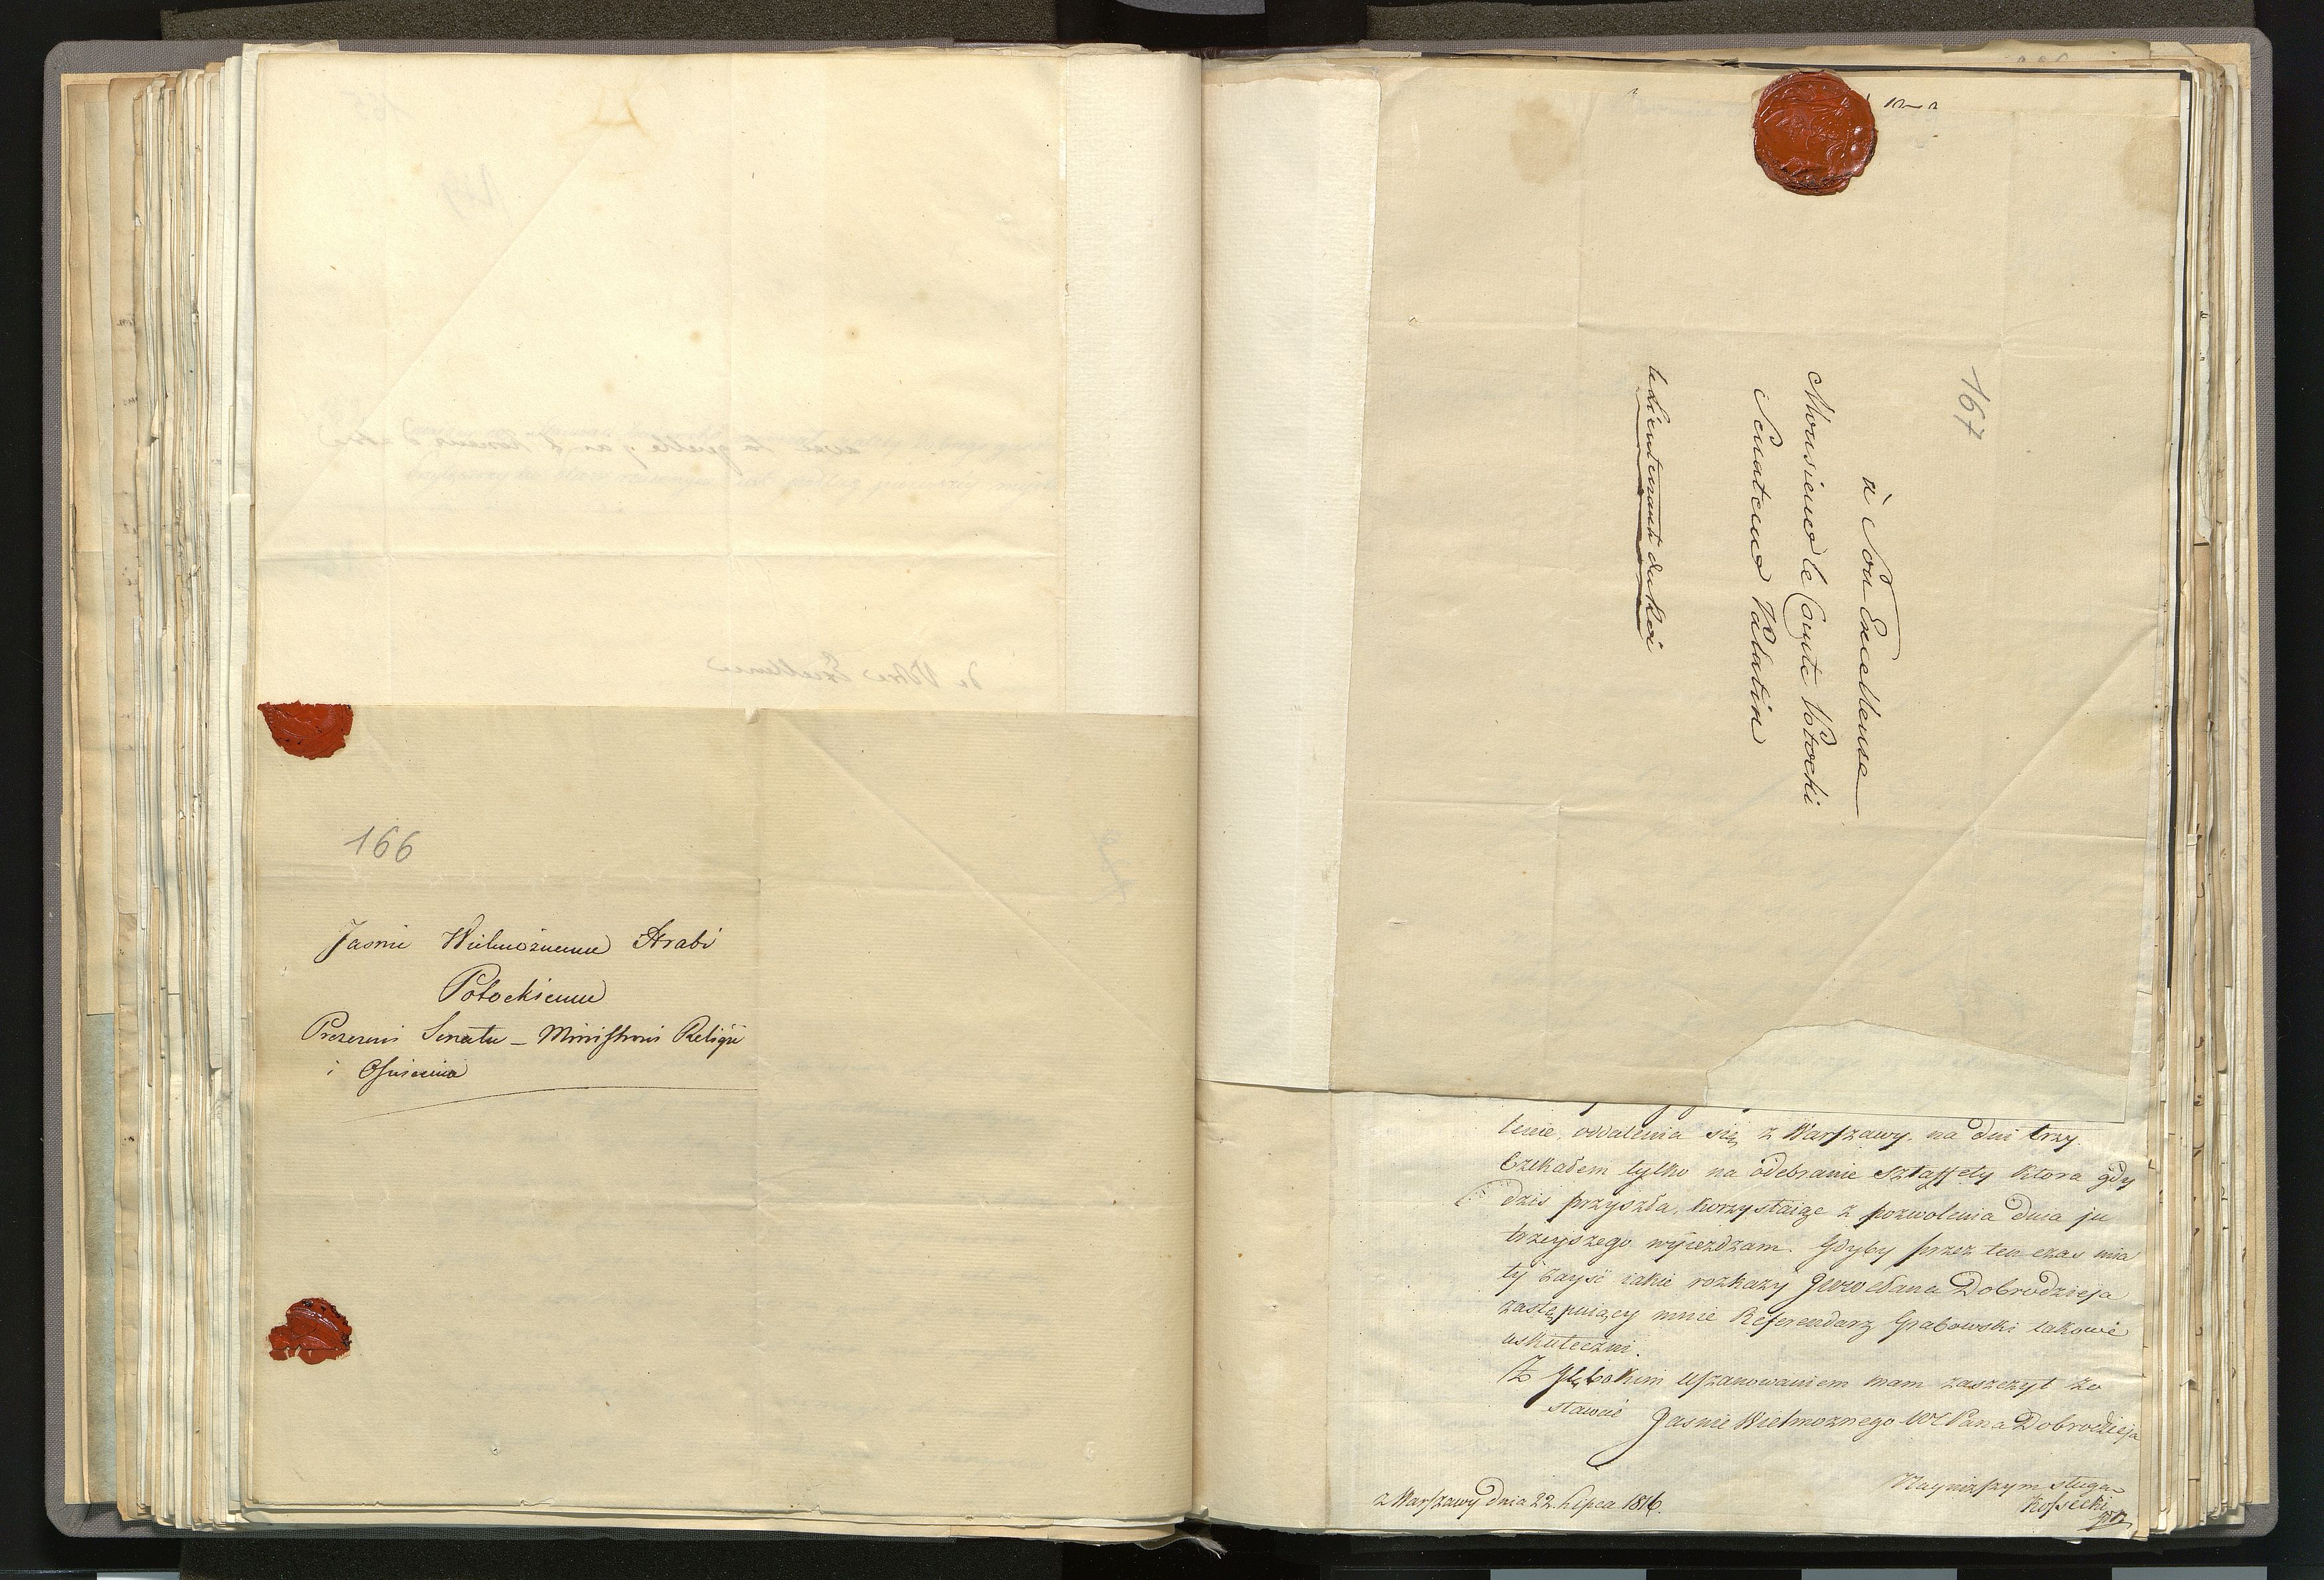 166
Jasnie Wielmożnemu Hrabi
Potockiemu
Prezesowi Senatu – Ministrowi Religii
i Oświecenia
167
à Son Excellense
Monsieur le Comte Potocki
Senateur Palatin
tenie, oddalenia się z Warszawy na dni trzy.
Czekałem tylko na odebranie sztaffety ktora gdy
dzis przyszła, korzystaiąc z pozwolenia dnia ju
trzeyszego wyiezdzam. Gdyby przez ten czas mia
ły zayść iakie rozkazy JWWPana Dobrodzieja
zastępuiący mnie Referendarz Grabowski takowe
uskuteczni.
Z Głębokim uszanowaniem mam zaszczyt zo
stawać
Jasnie Wielmoznego WPana Dobrodzieja
Nayniższym sługą
Kossecki
z Warszawy dnia 22 Lipca 1816.